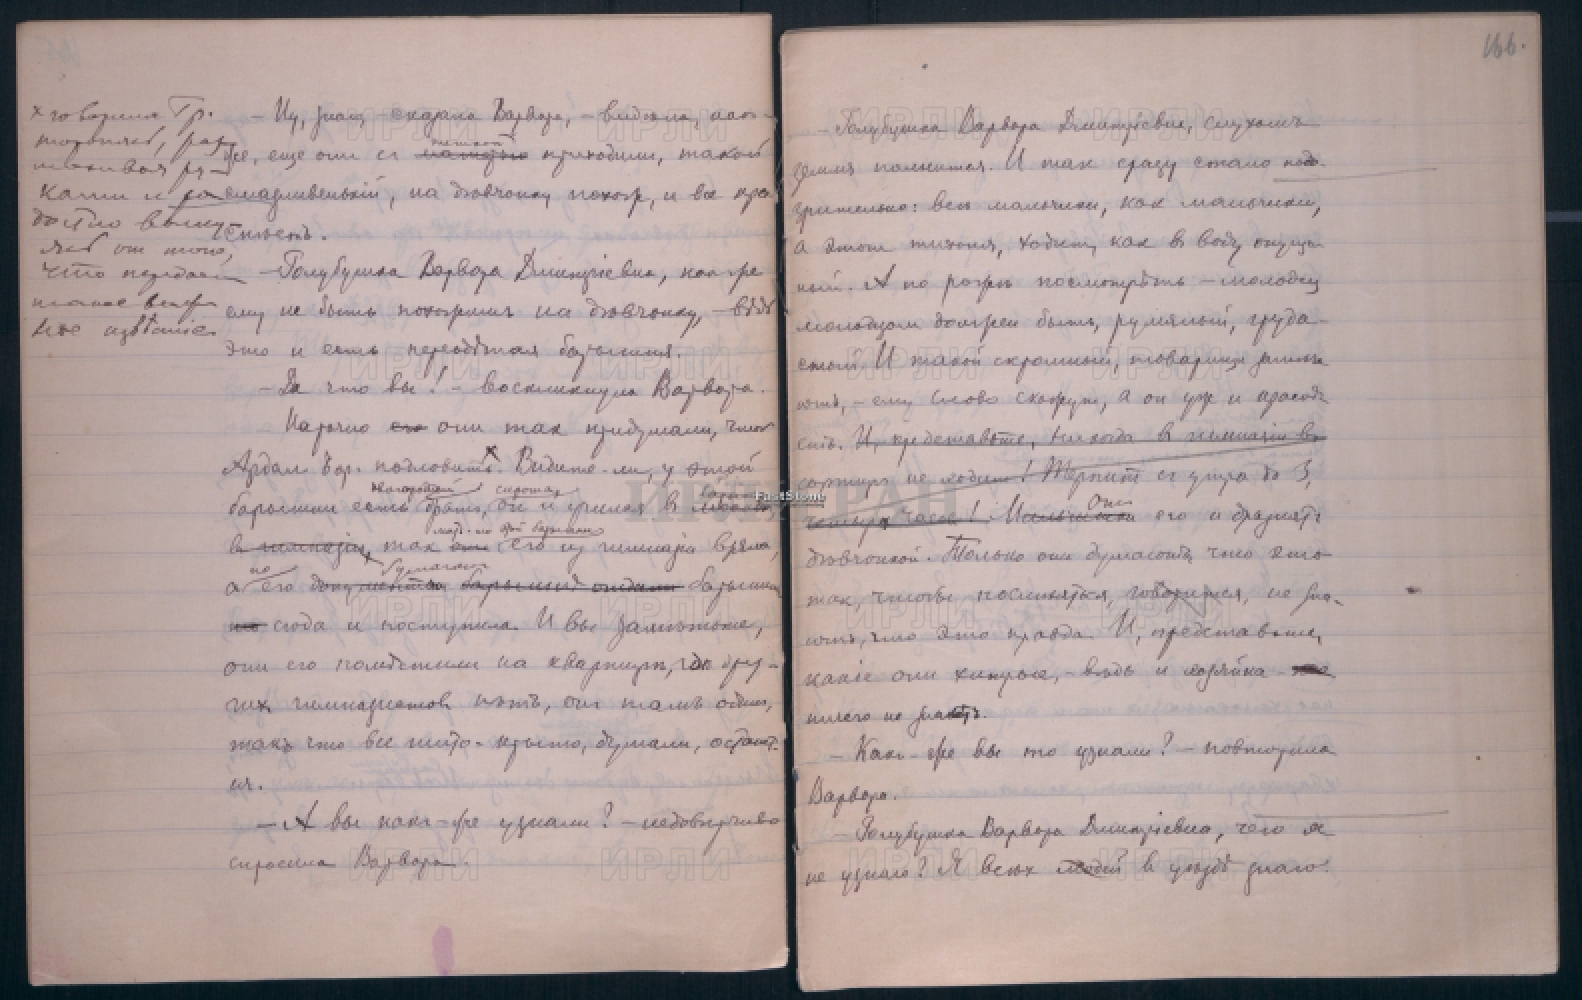 166.
× говорила Гр.
торопясь, раз
махивая ру-
ками и ра
достно волну
ясь от того,
что передает
такое важ
ное извѣстіе.
– Ну, знаю, – сказала Варвара, – видѣла, как-
же, еще они съ теткой приходили, такой
смазливенькій, на дѣвчонку похож, и все кра
снѣетъ.
– Голубушка Варвара Дмитріевна, как же
ему не быть похожимъ на дѣвчонку, – вѣдь
это и есть переодѣтая барышня.
– Да что вы! – воскликнула Варвара.
Нарочно они так придумали, чтоб
Ардал. Бор. подловить. × Видите-ли, у этой
двоюродный сирота,
барышни есть братъ, он и учился в
мать-то этой барышни
в гимназіи, так его из гимназіи взяла,
по бумагам
а его документам барышня
сюда и поступила. И вы замѣтьте,
они его помѣстили на квартирѣ, гдѣ дру-
гих гимназистов нѣтъ, он тамъ один,
такъ что все шито-крыто, думали, останет
ся.
– А вы какъ-же узнали? – недовѣрчиво
спросила Варвара.
– Голубушка Варвара Дмитріевна, слухомъ
земля полнится. И так сразу стало подо-
зрительно: всѣ мальчики, как мальчики,
а этот тихоня, ходит, как в воду опущен
ный. А по рожѣ посмотрѣть – молодец
молодцом должен быть, румяный, груда-
стый. И такой скромный, товарищи замѣча
ютъ, – ему слово скажут, а он уж и краснѣ
етъ. И, представьте, никогда в гимназіи в
сортиръ не ходит! Терпит съ утра до 3,
четырех часов! Они его и дразнятъ
дѣвчонкой. Только они думаютъ, что это
так, чтобы посмѣяться, говорится, не зна-
ютъ, что это правда. И, представьте,
какіе они хитрые, – вѣдь и хозяйка
ничего не знаетъ.
– Какъ-же вы то узнали? – повторила
Варвара.
– Голубушка Варвара Дмитріевна, чего я
не узнаю? Я всѣх людей в уѣздѣ знаю.
ИРЛИ РАН
FastStone